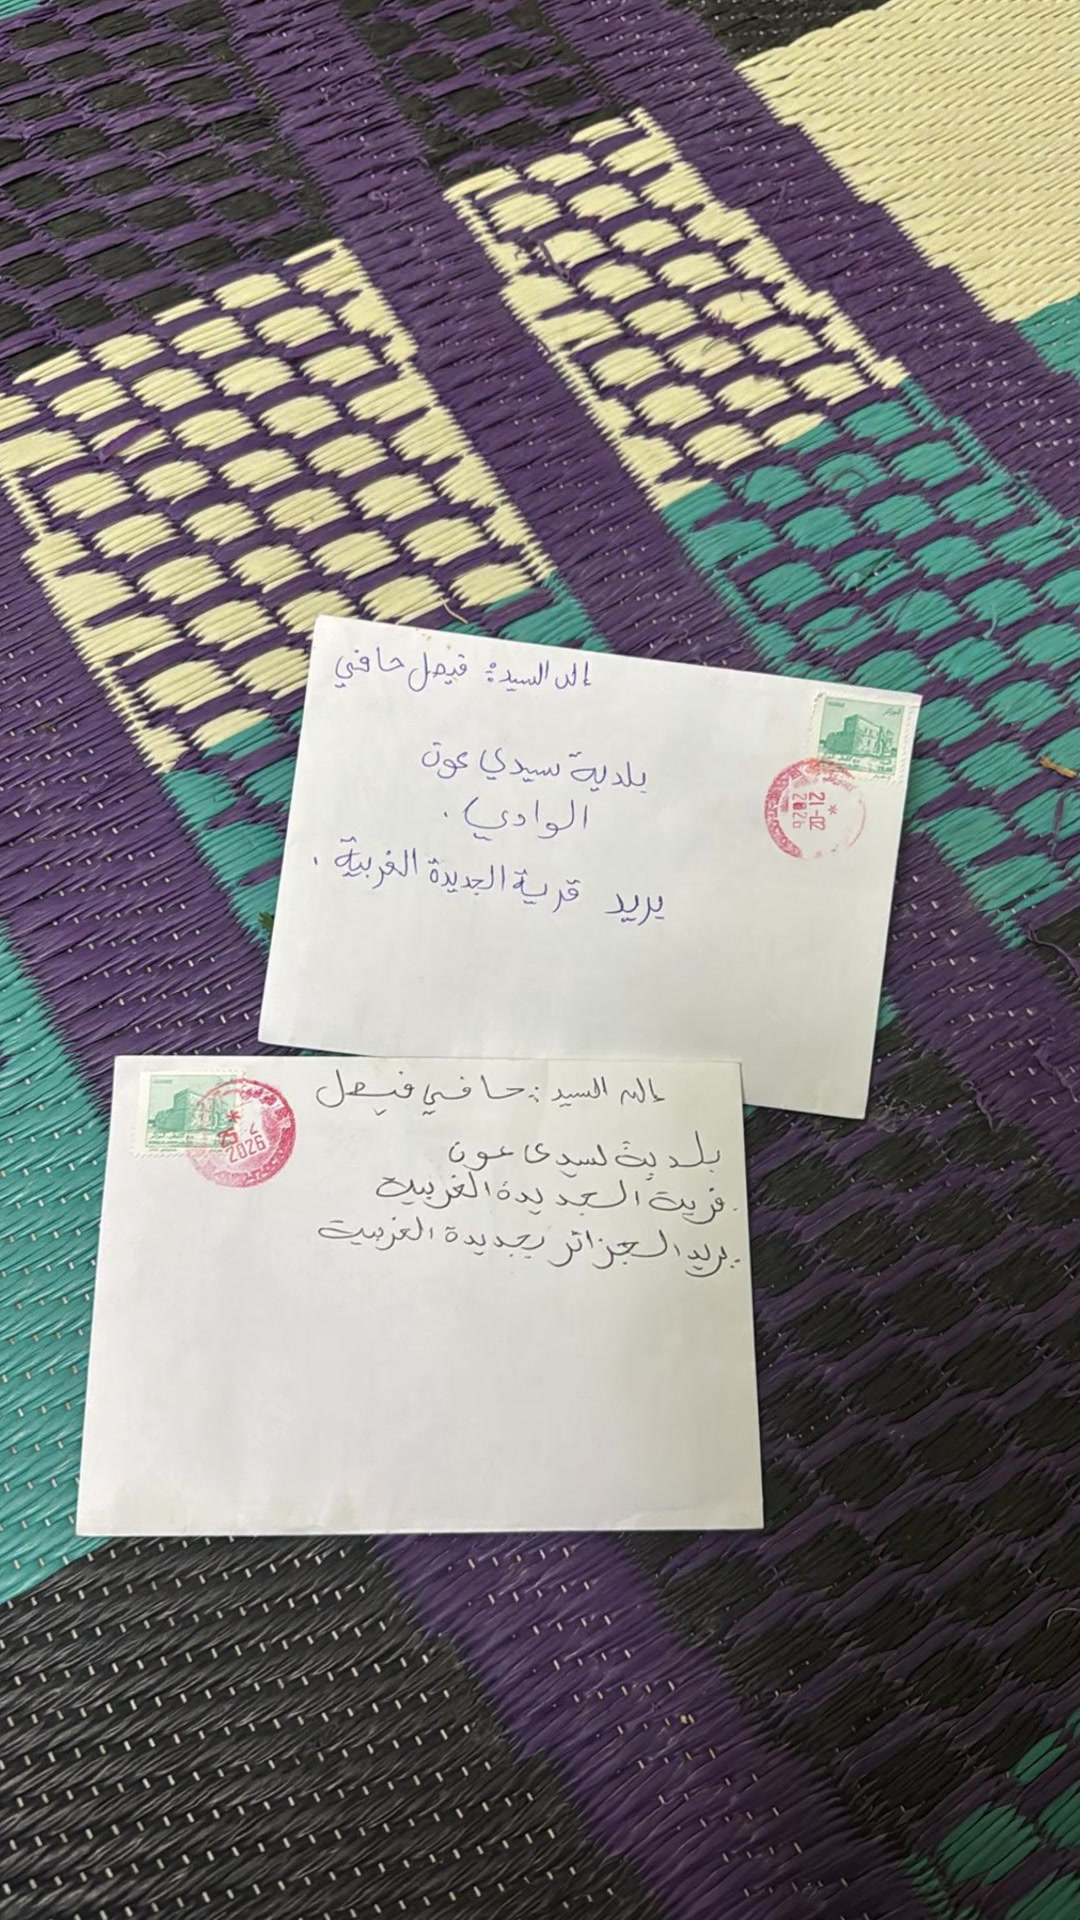 إلى السيدة: فيصل حافي
بلدية سيدي عون
الوادي.
بريد قرية الجديدة الغربية.
21-02
2026
إلى السيد: حافي فيصل
بلدية لسيدى عون
قرية الجديدة الغربية
بريد الجزائر بجديدة الغربية
2026